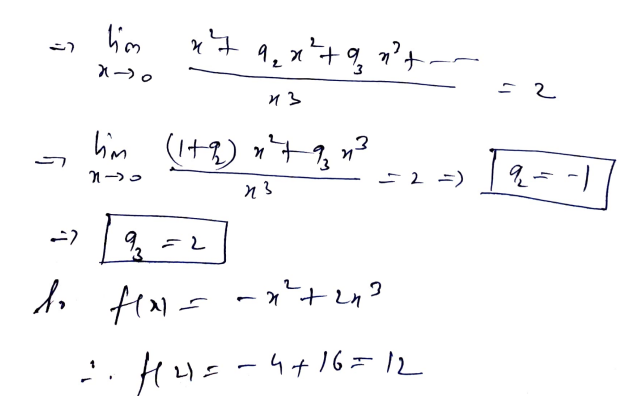 ⇒ lim x→0 (x² + a₂x² + a₃x³ + ---) / x³ = 2
⇒ lim x→0 ((1+a₂)x² + a₃x³) / x³ = 2 ⇒ a₂ = -1
⇒ a₃ = 2
So f(x) = -x² + 2x³
∴ f(2) = -4 + 16 = 12